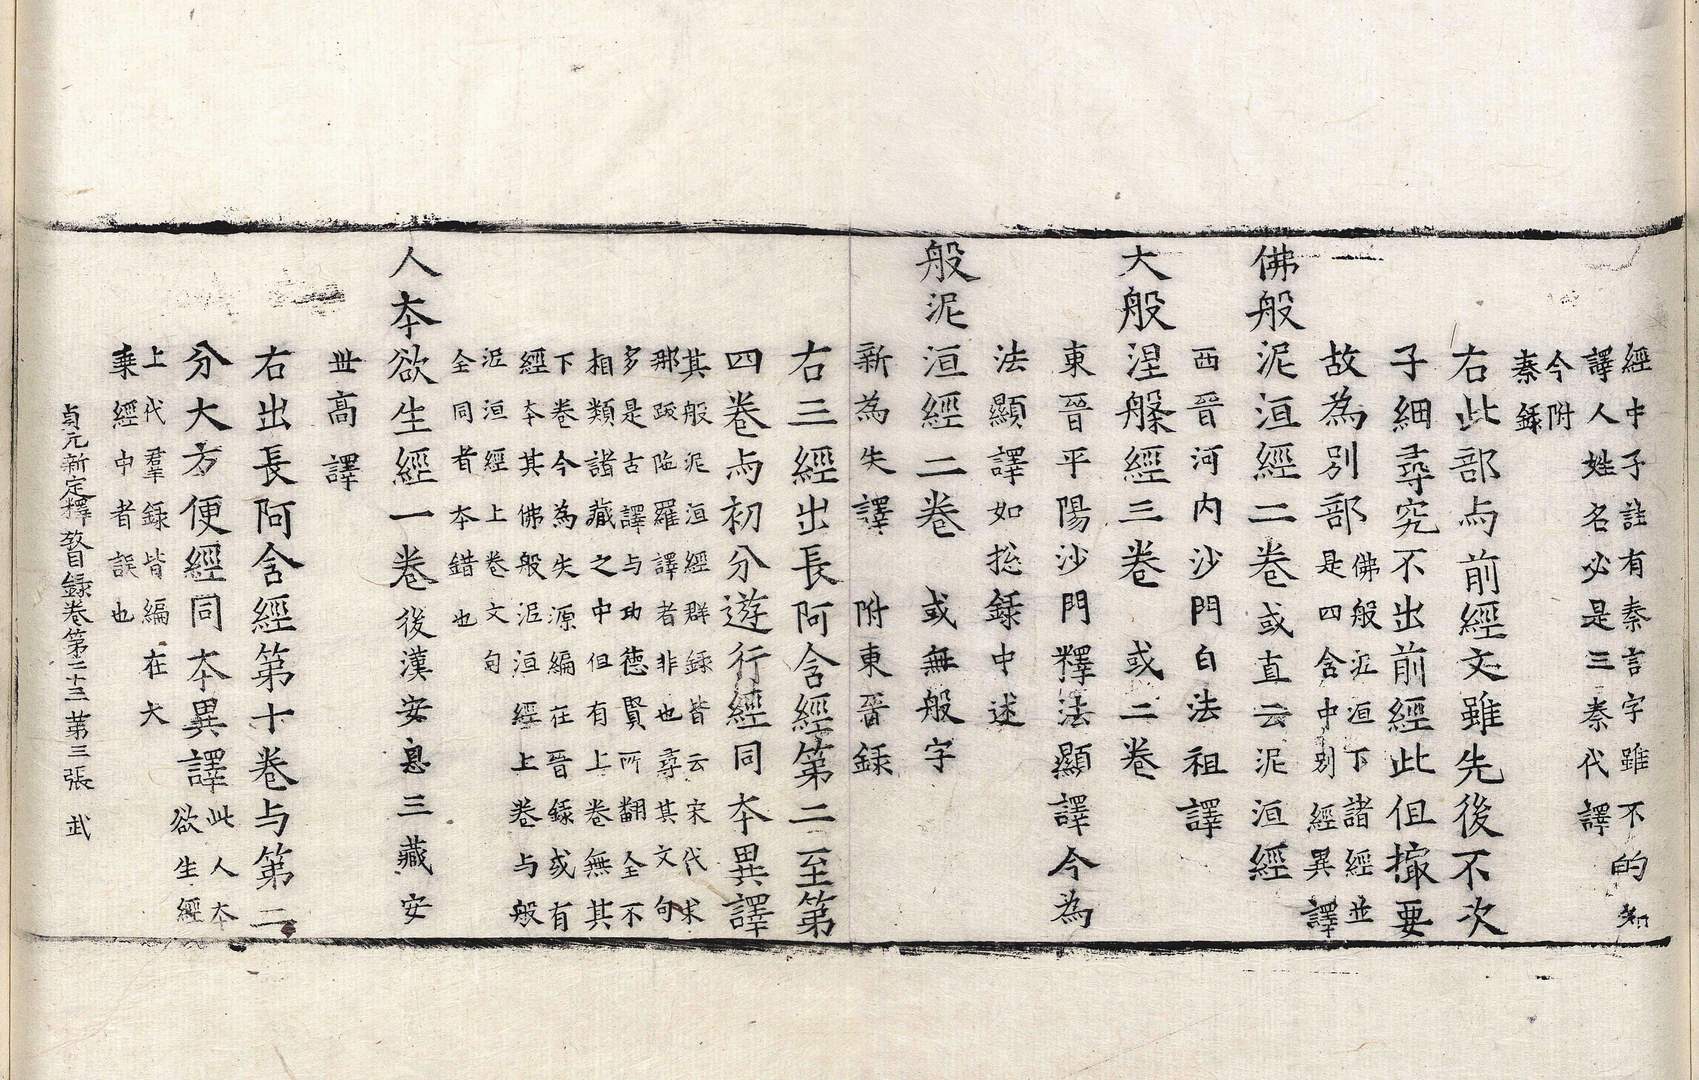 經中子註有秦言字雖不的知
譯人姓名必是三秦代譯
今附
秦錄
右此部与前經文雖先後不次
子細尋究不出前經此但撮要
故為別部佛般泥洹下諸經並
是四含中別經異譯
佛般泥洹經二卷或直云泥洹經
西晉河内沙門白法祖譯
大般涅槃經三卷或二卷
東晉平陽沙門釋法顯譯今為
法顯譯如捴錄中述
般泥洹經二卷或無般字
新為失譯附東晉錄
右三經出長阿含經第二至第
四卷与初分遊行經同本異譯
其般泥洹經群錄皆云宋代求
那跋陁羅譯者非也尋其文句
多是古譯与功德賢所翻全不
相類諸藏之中但有上卷無其
下卷今為失源編在晉錄或有
經本其佛般泥洹經上卷与般
泥洹經上卷文句
全同者本錯也
人本欲生經一卷後漢安息三藏安
世高譯
右出長阿含經第十卷与第二
分大方便經同本異譯此人本
欲生經
上代羣錄皆編在大
乗經中者誤也
貞元新定釋教目錄卷第二十三 第三張 武